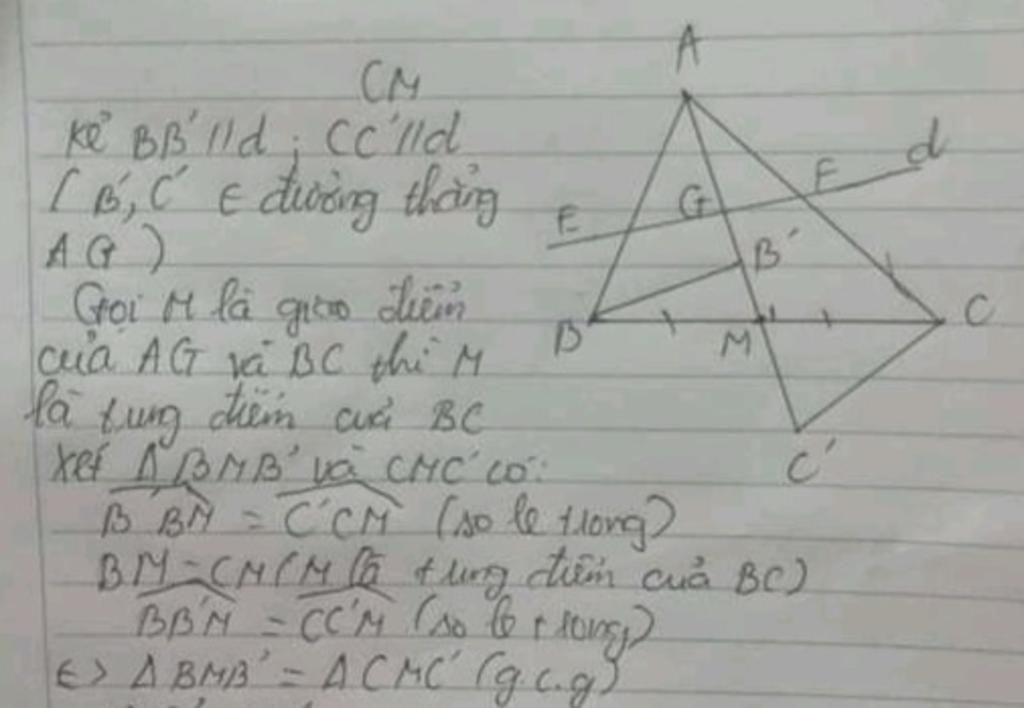 CM
Kẻ BB' // d ; CC' // d
( B', C' ∈ đường thẳng
AG )
Gọi M là giao điểm
của AG và BC thì M
là tung điểm của BC
Xét Δ BMB' và CMC' có:
B'BM = C'CM (so le trong)
BM = CM (M là tung điểm của BC)
BB'M = CC'M (so le trong)
<=> Δ BMB' = Δ CMC' (g.c.g)
A
d
F
G
E
B'
B
M
C
C'